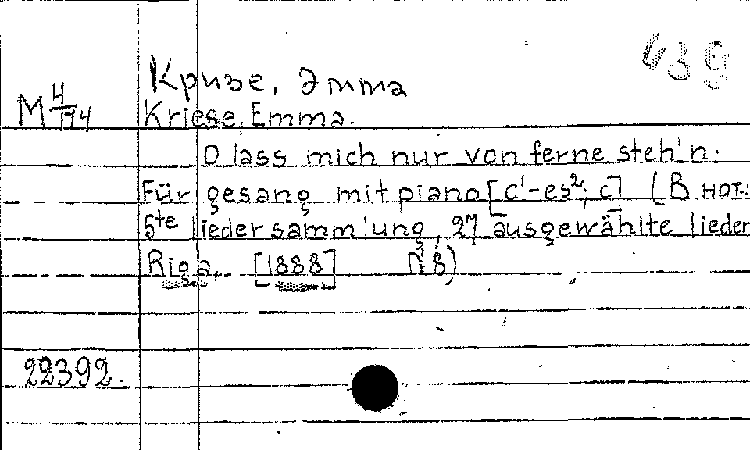 639
Кризе, Эмма
M 4/194
Kriese, Emma.
O lass mich nur von ferne steh'n:
Für gesang mit piano [c'-es², c] (В нот.:
5te liedersamm'ung, 27 ausgewählte lieder
Riga, [1888] N 8)
22392.